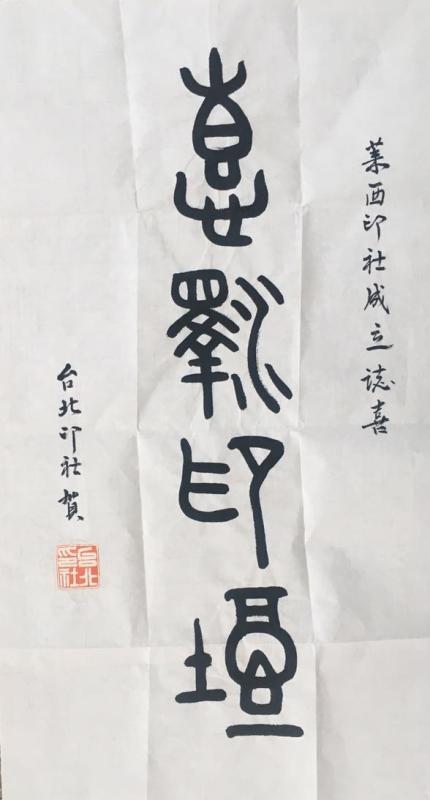 萊西印社成立誌喜
悳澤印壇
台北印社賀
台北印社